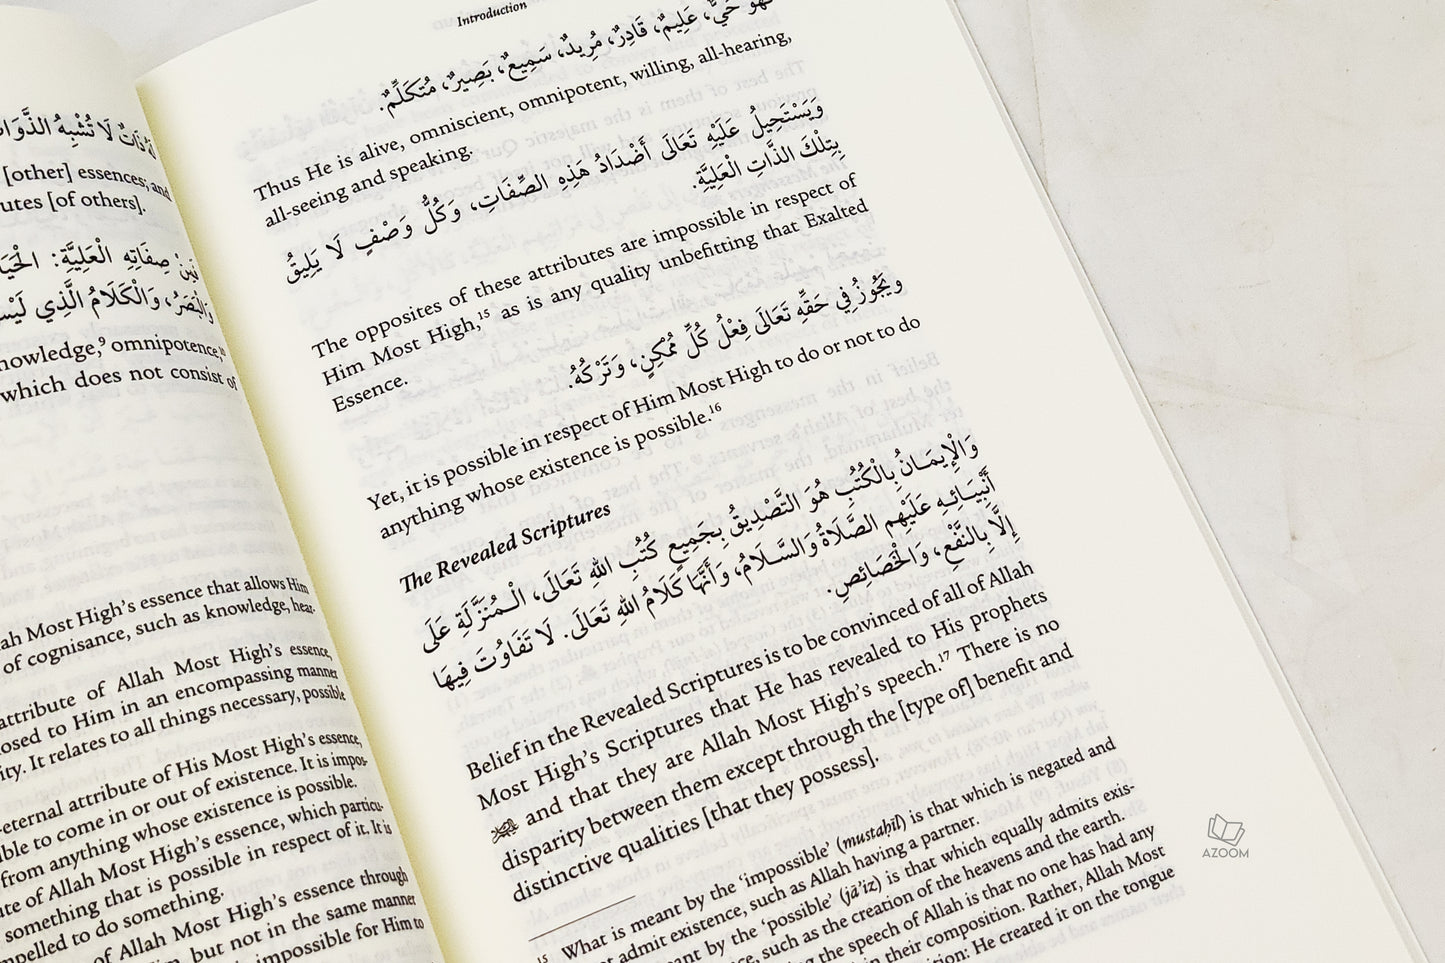 لَا تُشْبِهُ الذَّوَا
[other] essences; and
utes [of others].
صِفَاتِهِ الْعَلِيَّةِ: الْحَيَا
وَالْبَصَرُ، وَالْكَلَامُ الَّذِي لَيْسَ
nowledge,⁹ omnipotence,¹⁰
which does not consist of
lah Most High's essence that allows Him
of cognisance, such as knowledge, hear-
attribute of Allah Most High's essence,
losed to Him in an encompassing manner
ity. It relates to all things necessary, possible
-eternal attribute of His Most High's essence,
ible to come in or out of existence. It is impos-
from anything whose existence is possible.
ute of Allah Most High's essence, which particu-
something that is possible in respect of it. It is
mpelled to do something.
of Allah Most High's essence through
Him, but not in the same manner
impossible for Him to
Introduction
فَهُوَ حَيٌّ، عَلِيمٌ، قَادِرٌ، مُرِيدٌ، سَمِيعٌ، بَصِيرٌ، مُتَكَلِّمٌ.
Thus He is alive, omniscient, omnipotent, willing, all-hearing,
all-seeing and speaking.
وَيَسْتَحِيلُ عَلَيْهِ تَعَالَى أَضْدَادُ هَذِهِ الصِّفَاتِ، وَكُلُّ وَصْفٍ لَا يَلِيقُ
بِتِلْكَ الذَّاتِ الْعَلِيَّةِ.
The opposites of these attributes are impossible in respect of
Him Most High,¹⁵ as is any quality unbefitting that Exalted
Essence.
وَيَجُوزُ فِي حَقِّهِ تَعَالَى فِعْلُ كُلِّ مُمْكِنٍ، وَتَرْكُهُ.
Yet, it is possible in respect of Him Most High to do or not to do
anything whose existence is possible.¹⁶
The Revealed Scriptures
وَالْإِيمَانُ بِالْكُتُبِ هُوَ التَّصْدِيقُ بِجَمِيعِ كُتُبِ اللهِ تَعَالَى، الْمُنَزَّلَةِ عَلَى
أَنْبِيَائِهِ عَلَيْهِم الصَّلَاةُ وَالسَّلَامُ، وَأَنَّهَا كَلَامُ اللهِ تَعَالَى. لَا تَفَاوُتَ فِيهَا
إِلَّا بِالنَّفْعِ، وَالْخَصَائِصِ.
Belief in the Revealed Scriptures is to be convinced of all of Allah
Most High's Scriptures that He has revealed to His prophets
and that they are Allah Most High's speech.¹⁷ There is no
disparity between them except through the [type of] benefit and
distinctive qualities [that they possess].
15 What is meant by the 'impossible' (mustaḥīl) is that which is negated and
not admit existence, such as Allah having a partner.
nt by the 'possible' (jā'iz) is that which equally admits exis-
ce, such as the creation of the heavens and the earth.
ing the speech of Allah is that no one has had any
in their composition. Rather, Allah Most
ition: He created it on the tongue
AZOOM